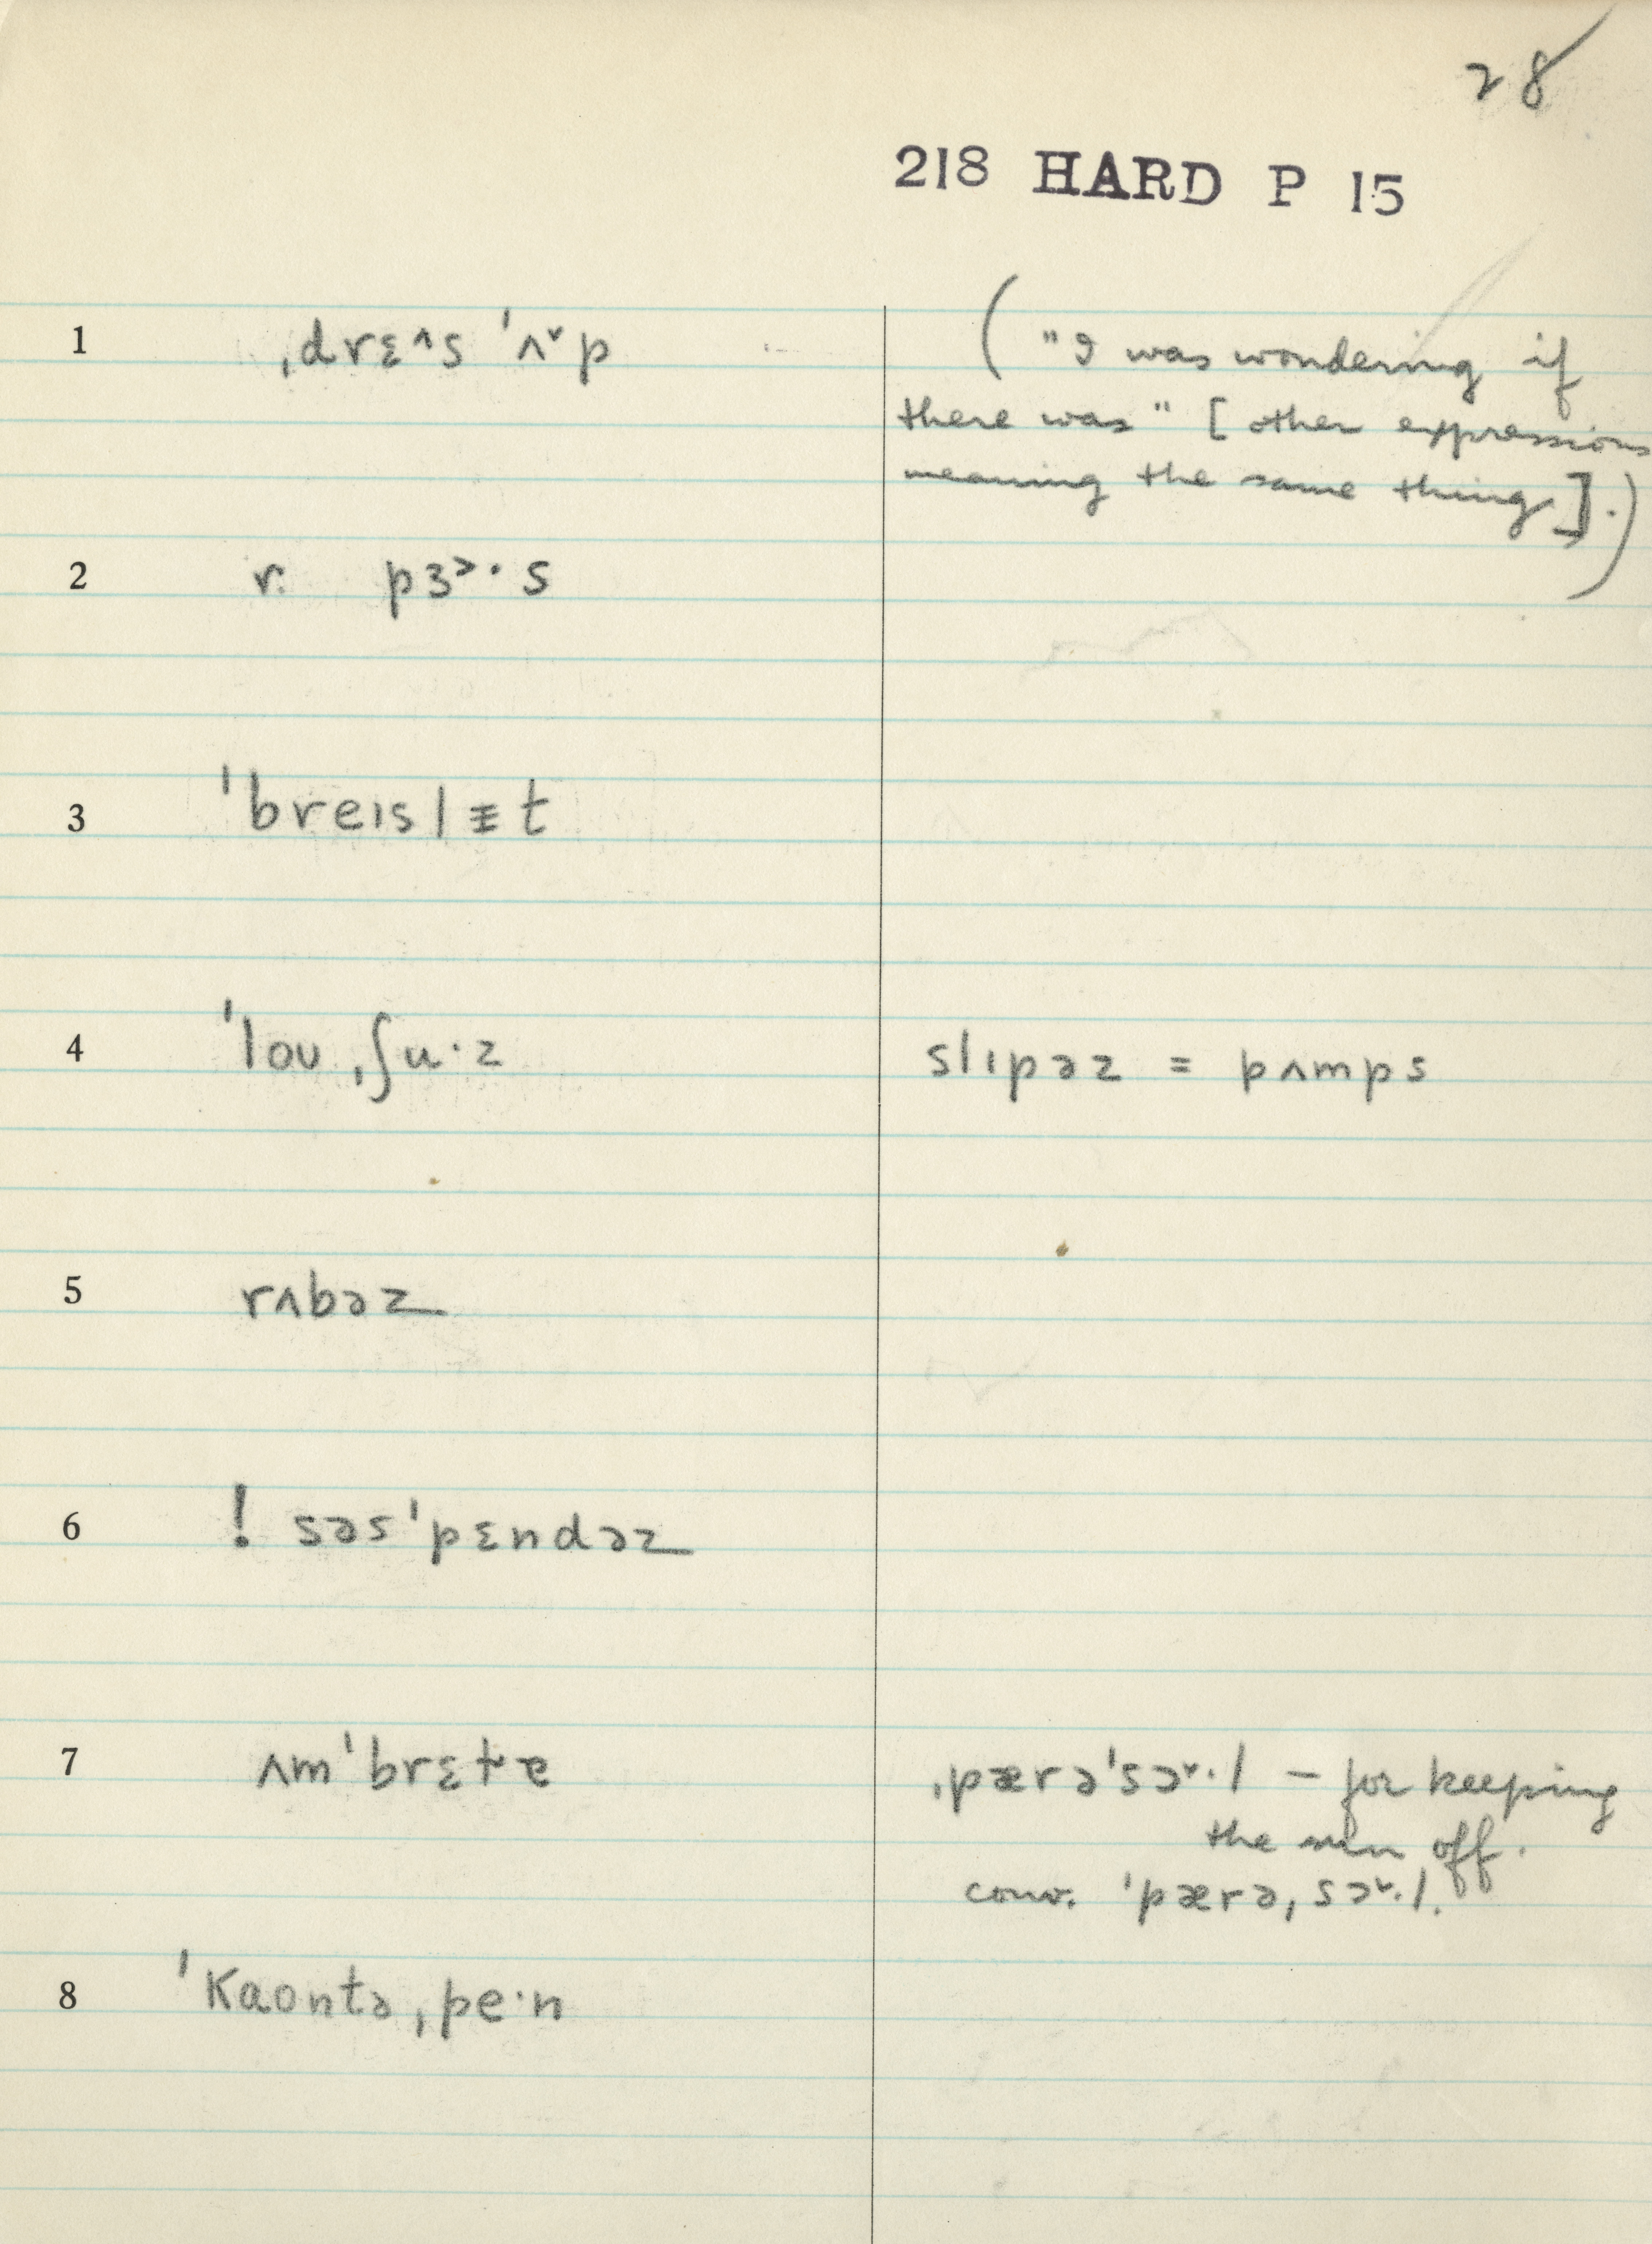 28
218 HARD P 15
1 ˌdrɛ^s ˈʌ˅p ("I was wondering if
there was" [other expressions
meaning the same thing].)
2 r. pɜ˃·s
3 ˈbreɪslɪ̵t
4 ˈloʊˌʃu·z slɪpəz = pʌmps
5 rʌbəz
6 ! səsˈpɛndəz
7 ʌmˈbrɛɫɐ ˌpærəˈsɔ˅·l – for keeping
the sun off.
conv. ˈpærəˌsɔ˅·l.
8 ˈkaʊntəˌpe·n